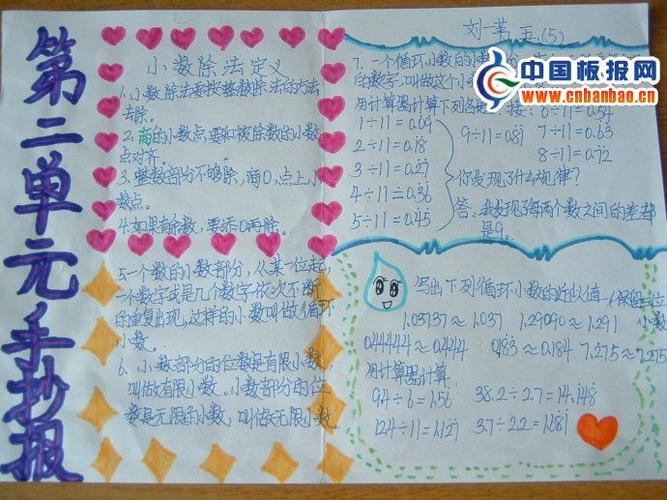 第二单元手抄报
小数除法定义
1.小数除法要按整数除法的方法
去除。
2.商的小数点,要和被除数的小数
点对齐。
3.整数部分不够除,商0,点上小
数点。
4.如果有余数,要添0再除。
5.一个数的小数部分,从某一位起,
一个数字或是几个数字依次不断
的重复出现,这样的小数叫做循环
小数。
6.小数部分的位数是有限小数,
叫做有限小数。小数部分的位
数是无限的小数,叫做无限小数。
刘一 五.(5)
中国板报网
www.cnbanbao.cn
7.一个循环小数的小数部分
的数字,叫做这个小
用计算器计算下列各题 6÷11=0.54
1÷11=0.09
9÷11=0.81 7÷11=0.63
2÷11=0.18
8÷11=0.72
3÷11=0.27
你发现了什么规律?
4÷11=0.36
答:我发现了每两个数之间的差都
5÷11=0.45
是9。
写出下列循环小数的近似值 (保留三位
小数
1.03737≈1.037 1.29090≈1.291
0.44444≈0.444 0.183≈0.184 7.275≈7.27
用计算器计算.
9.4÷6=1.56 38.2÷2.7=14.148
12.4÷11=1.127 3.7÷2.2=1.681